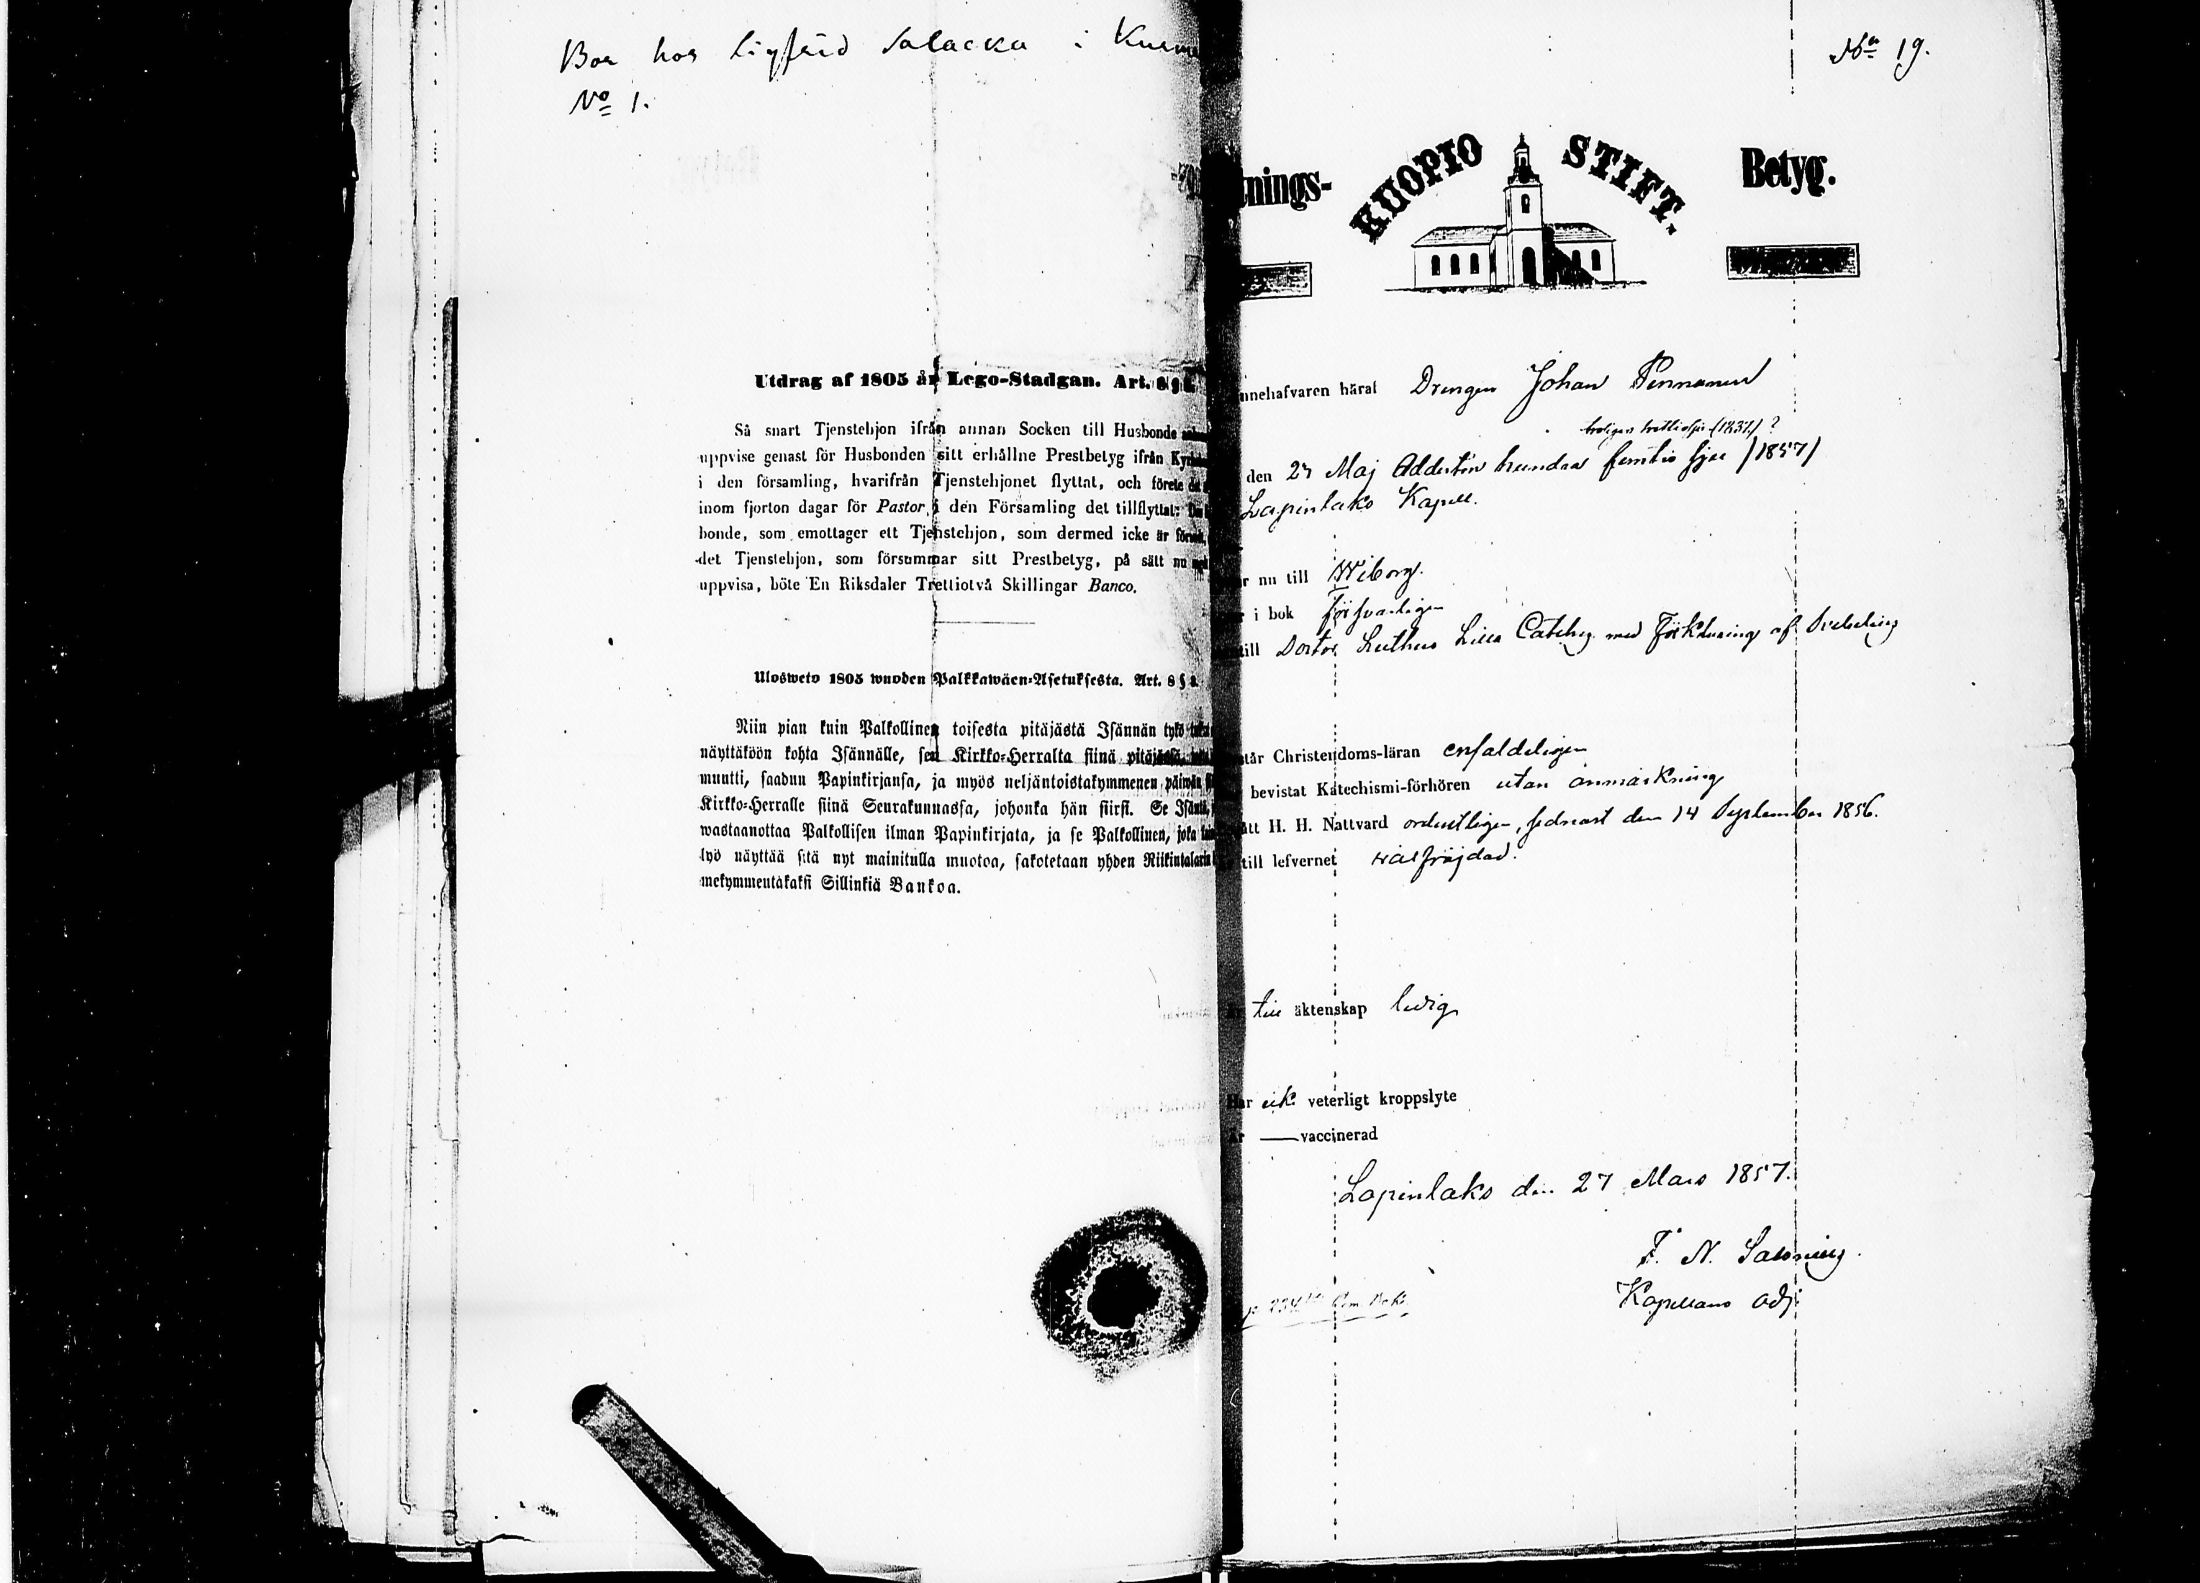 Bor hos Sigfrid Salacka i
No 1.
Utdrag af 1805 år Lego-Stadgan. Art. 8 §
Så snart Tjenstehjon ifrån annan Socken till Husbonde
uppvise genast för Husbonden sitt erhållne Prestbetyg ifrån
i den församling, hvarifrån Tjenstehjonet flyttat, och förete
inom fjorton dagar för Pastor i den Församling det tillflyttat:
bonde, som emottager ett Tjenstehjon, som dermed icke är
det Tjenstehjon, som försummar sitt Prestbetyg, på sätt nu
uppvisa, böte En Riksdaler Trettiotvå Skillingar Banco.
Ulosweto 1805 wuoden Palkkawäen-Asetuksesta. Art. 8 §
Niin pian kuin Palkollinen toisesta pitäjästä Isännän tykö
näyttäköön kohta Isännälle, sen Kirkko-Herralta siinä pitäjässä,
muutti, saadun Papinkirjansa, ja myös neljäntoistakymmenen päiwän
Kirkko-Herralle siinä Seurakunnassa, johonka hän siirsi. Se Isäntä,
wastaanottaa Palkollisen ilman Papinkirjata, ja se Palkollinen, joka
lyö näyttää sitä nyt mainitulla muotoa, sakotetaan yhden Riikintalarin
mekymmentäkaksi Sillinkiä Bankoa.
No 19.
tnings- KUOPIO STIFT. Betyg.
nnehafvaren häraf Drengen Johan Pennanen
troligen trettiosju (1837) ?
den 27 Maj Adderton hundra femtio sju (1857)
Lapinlaks Kapell.
r nu till Wiborg.
i bok försvarligen
till Doctor Luthers Lilla Catches med Förklaring af Svebelius
tår Christendoms-läran enfaldeligen
bevistat Katechismi-förhören utan anmärkning
ått H. H. Nattvard ordentligen, sednast den 14 September 1856.
till lefvernet välfräjdad.
till äktenskap ledig
Har ick veterligt kroppslyte
vaccinerad
Lapinlaks den 27 Mars 1857.
F. N.
Kapellans adj.